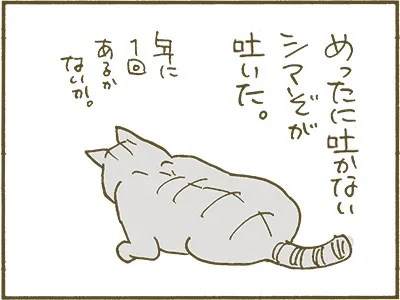 めったに吐かない
シマぞが
吐いた。
年に
1回
あるか
ないか。